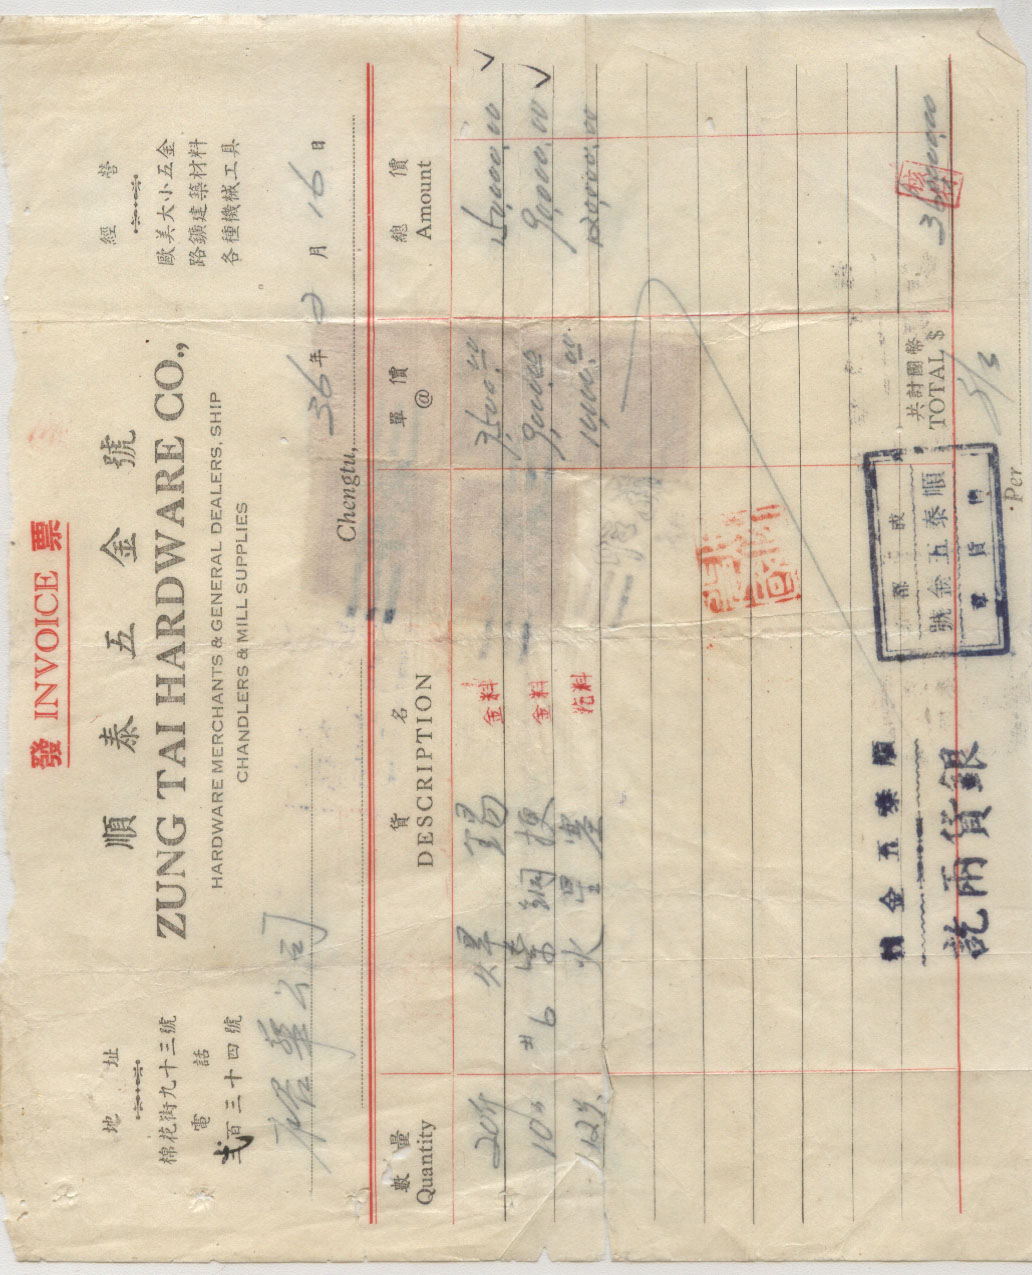 發 INVOICE 票
順泰五金號
ZUNG TAI HARDWARE CO.,
HARDWARE MERCHANTS & GENERAL DEALERS, SHIP
CHANDLERS & MILL SUPPLIES
地址
棉花街九十三號
電話
弍百三十四號
經營
歐美大小五金
路鑛建築材料
各種機械工具
華公司
Chengtu, 36年2月16日
數量 貨名 單價 總價
Quantity DESCRIPTION @ Amount
20斤 焊錫 金料 7,500.00 150,000.00
#6 金料 9,000.00 90,000.00
12 火星塞 10,000.00 120,000.00
共計國幣
TOTAL $ 360,000.00
核
順泰五金號
順泰五金號
銀貨兩訖
Per